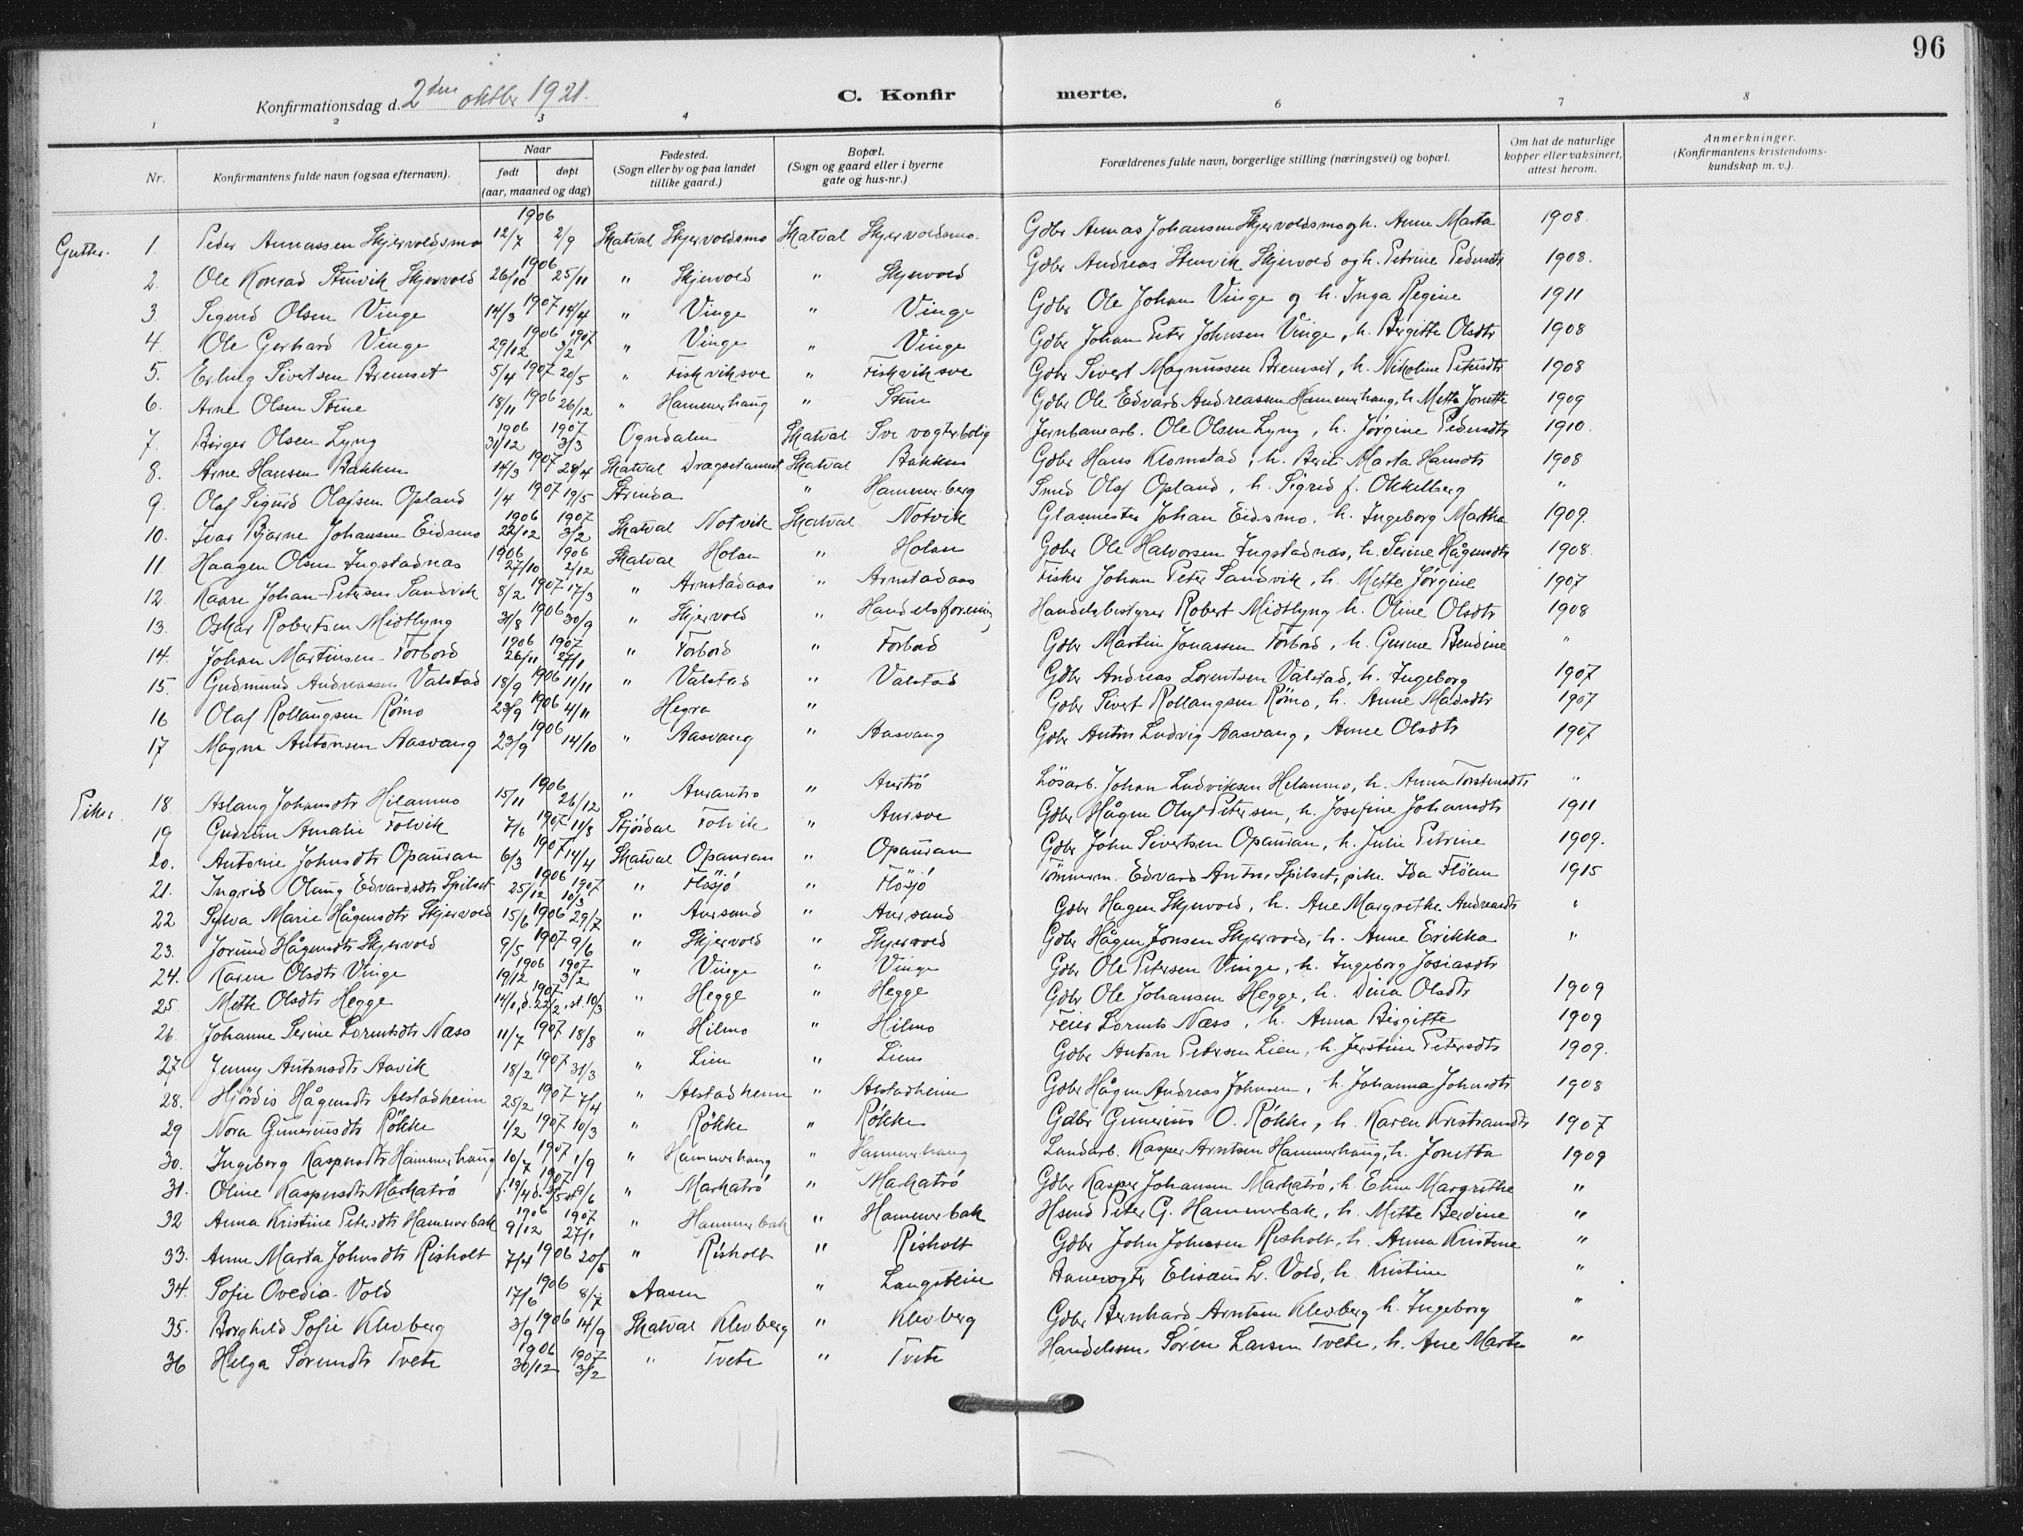 96
Konfirmationsdag d. 2den oktbr 1921. C. Konfir merte.
1 2 3 4 6 7 8
Nr. Konfirmantens fulde navn (ogsaa efternavn). Naar født døpt (aar, maaned og dag) Fødested. (Sogn eller by og paa landet tillike gaard.) Bopæl. (Sogn og gaard eller i byerne gate og hus-nr.) Forældrenes fulde navn, borgerlige stilling (næringsvei) og bopæl. Om hat de naturlige kopper eller vaksinert, attest herom. Anmerkninger. (Konfirmantens kristendoms-kundskap m. v.).
Gutter. 1. Peder Annassen Skjervoldsmo 1906 12/7 2/9 Skatval Skjervoldsmo Skatval Skjervoldsmo. Gdbr Annas Johansen Skjervoldsmo og h. Anne Marta 1908.
2. Ole Konrad Stenvik Skjervold 1906 26/10 25/11 " Skjervold " Skjervold Gdbr Andreas Stenvik Skjervold og h. Petrine Pedersdtr 1908.
3. Sigurd Olsen Vinge 14/3 1907 14/4 " Vinge " Vinge Gdbr Ole Johan Vinge og h. Inga Regine 1911
4 Ole Gerhard Vinge 1906 1907 29/12 3/2 " Vinge " Vinge Gdbr Johan Peter Johnsen Vinge, h. Birgitte Olsdtr 1908
5. Erling Sivertsen Bremset 5/4 1907 20/5 " Fiskviksve " Fiskviksve Gdbr Sivert Magnussen Bremset, h. Nikoline Petersdtr 1908
6. Arne Olsen Stene 18/11 1906 26/12 " Hammerhaug " Stene Gdbr Ole Edvard Andreassen Hammerhaug, h. Mette Jonette 1909
7. Birger Olsen Lyng 1906 1907 31/12 3/3 Ogndalen Skatval Sve vogterbolig Jernbanearb. Ole Olsen Lyng, h. Jørgine Pedersdtr 1910.
8. Arne Hansen Bakken 14/3 1907 28/4 Skatval Skatval Bakken Gdbr Hans Klomstad, h. Berit Marta Hansdtr 1908
9. Olaf Sigurd Olafsen Opland 1/4 1907 19/5 Strinda " Hammerberg Smed Olaf Opland, h. Sigrid f. Okkelberg "
10. Ivar Bjarne Johansen Eidsmo 1906 1907 22/12 3/2 Skatval Notvik Skatval Notvik Glasmester Johan Eidsmo, h. Ingeborg Martha 1909.
11. Haagen Olsen Ingstadnas 1906 1906 27/10 2/12 Skatval Holan " Holan Gdbr Ole Halvorsen Ingstadnas, h. Serine Hågensdtr 1908.
12. Kaare Johan-Petersen Sandvik 8/2 1907 17/3 " Arnstadaas " Arnstadaas Fisker Johan Peter Sandvik, h. Mette Jørgine 1907
13. Oskar Robertsen Midtlyng 3/8 1906 30/9 " Skjervold " Handelsforening Handelsbestyrer Robert Midtlyng h. Oline Olsdtr 1908
14. Johan Martinsen Forbord 1906 1907 26/11 27/1 " Forbord " Forbord Gdbr Martin Jonassen Forbord, h. Gurine Bendine "
15. Gudmund Andreassen Valstad 18/9 1906 11/11 " Valstad " Valstad Gdbr Andreas Lorentsen Valstad, h. Ingeborg 1907
16 Olaf Rollaugsen Rømo 23/9 1906 4/11 Hegra " Gdbr Sivert Rollaugsen Rømo, h. Anne Madsdtr 1907
17 Magne Antonsen Aasvang 1906 23/9 14/10 " Aasvang " Aasvang Gdbr Anton Ludvig Aasvang, Anne Olsdtr 1907
Piker. 18. Aslaug Johansdtr Hilammo 1906 15/11 26/12 " Auran " Auströ Lösarb. Johan Ludviksen Hilammo, h. Anna Torstensdtr "
19 Gudrun Amalie Folvik 7/6 1907 11/8 Stjördal Folvik " Aursve Gdbr Hågen Oluf Petersen, h. Josefine Johansdtr 1911
20. Antonie Johnsdtr Opauran 6/3 1907 14/4 Skatval Opauran " Opauran Gdbr John Sivertsen Opauran, h. Julie Petrine 1909.
21. Ingrid Olaug Edvardsdtr Spilset 1906 1907 25/12 10/3 " Flösjö " Flösjö Tömmerm. Edvard Anton Spilset, pike Ida Flöan 1915
22 Sylva Marie Hågensdtr Skjervold 15/6 1906 29/7 " Aursand " Aursand Gdbr Hagen Skjervold, h. Ane Margrethe Andreasdtr "
23. Jorund Hågensdtr Skjervold 9/5 1907 9/6 " Skjervold " Skjervold Gdbr Hågen Jonsen Skjervold, h. Anne Erikka "
24. Karen Olsdtr Vinge 1906 1907 19/12 3/2 " Vinge " Vinge Gdbr Ole Petersen Vinge, h. Ingeborg Josiasdtr
25 Mette Olsdtr Hegge 1907 14/1, d. 22/2, st. 10/3 " Hegge " Hegge Gdbr Ole Johansen Hegge, h. Dina Olsdtr 1909
26. Johanne Serine Lorentsdtr Næss 11/7 1907 18/8 " Hilmo " Hilmo Feier Lorents Næss, h. Anna Birgitte 1909
27 Jenny Antonsdtr Aavik 18/2 1907 31/3 " Lien " Lien Gdbr Anton Petersen Lien, h. Jerstine Petersdtr 1909.
28. Hjördis Hågensdtr Alstadheim 25/2 1907 7/4 " Alstadheim " Alstadheim Gdbr Hågen Andreas Johnsen, h. Johanna Johnsdtr 1908
29 Nora Guneriusdtr Røkke 1/2 1907 10/3 " Røkke " Røkke Gdbr Gunerius O. Røkke, h. Karen Kristiansdtr 1907
30. Ingeborg Kaspersdtr Hammerhaug 10/7 1907 1/9 " Hammerhaug " Hammerhaug Landarb. Kasper Arntsen Hammerhaug, h. Jonetta 1909
31. Oline Kaspersdtr Markatrö 1907 " Markatrö " Markatrö Gdbr Kasper Johansen Markatrö, h. Elen Margrethe "
32 Anna Kristine Petersdtr Hammerbak 1906 1907 9/12 27/1 " Hammerbak " Hammerbak Hsmd Peter G. Hammerbak, h. Mette Berdine "
33. Anne Marta Johnsdtr Risholt 7/4 1906 20/5 " Risholt " Risholt Gdbr John Johnsen Risholt, h. Anna Kristine "
34. Sofie Ovedia Vold 17/6 1906 8/7 Aasen " Langstein Banevogter Elisæus L. Vold, h. Kristine "
35. Borghild Sofie Klevberg 3/9 1906 14/9 Skatval Klevberg " Klevberg Gdbr Bernhard Arntsen Klevberg h. Ingeborg "
36 Helga Sörensdtr Tvete 1906 1907 30/12 3/2 " Tvete " Tvete Handelsm. Sören Larsen Tvete, h. Ane Marta "